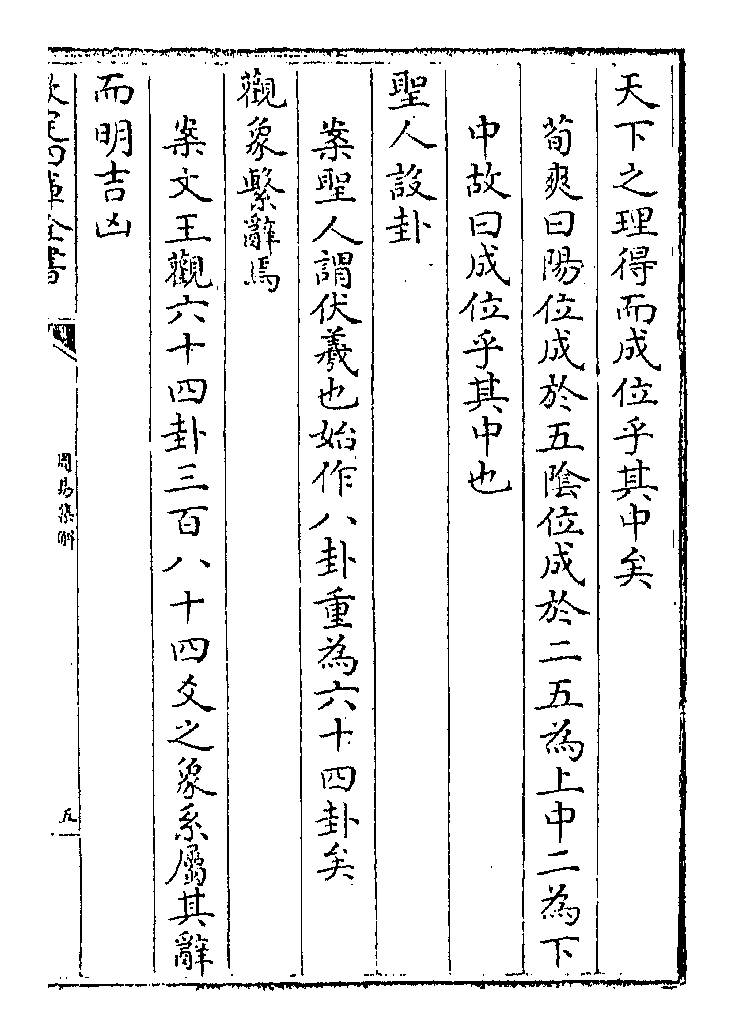 天下之理得而成位乎其中矣
荀爽曰陽位成於五陰位成於二五為上中二為下
中故曰成位乎其中也
聖人設卦
案聖人謂伏羲也始作八卦重為六十四卦矣
觀象繫辭焉
案文王觀六十四卦三百八十四爻之象系屬其辭
而明吉凶
欽定四庫全書
周易集解
五